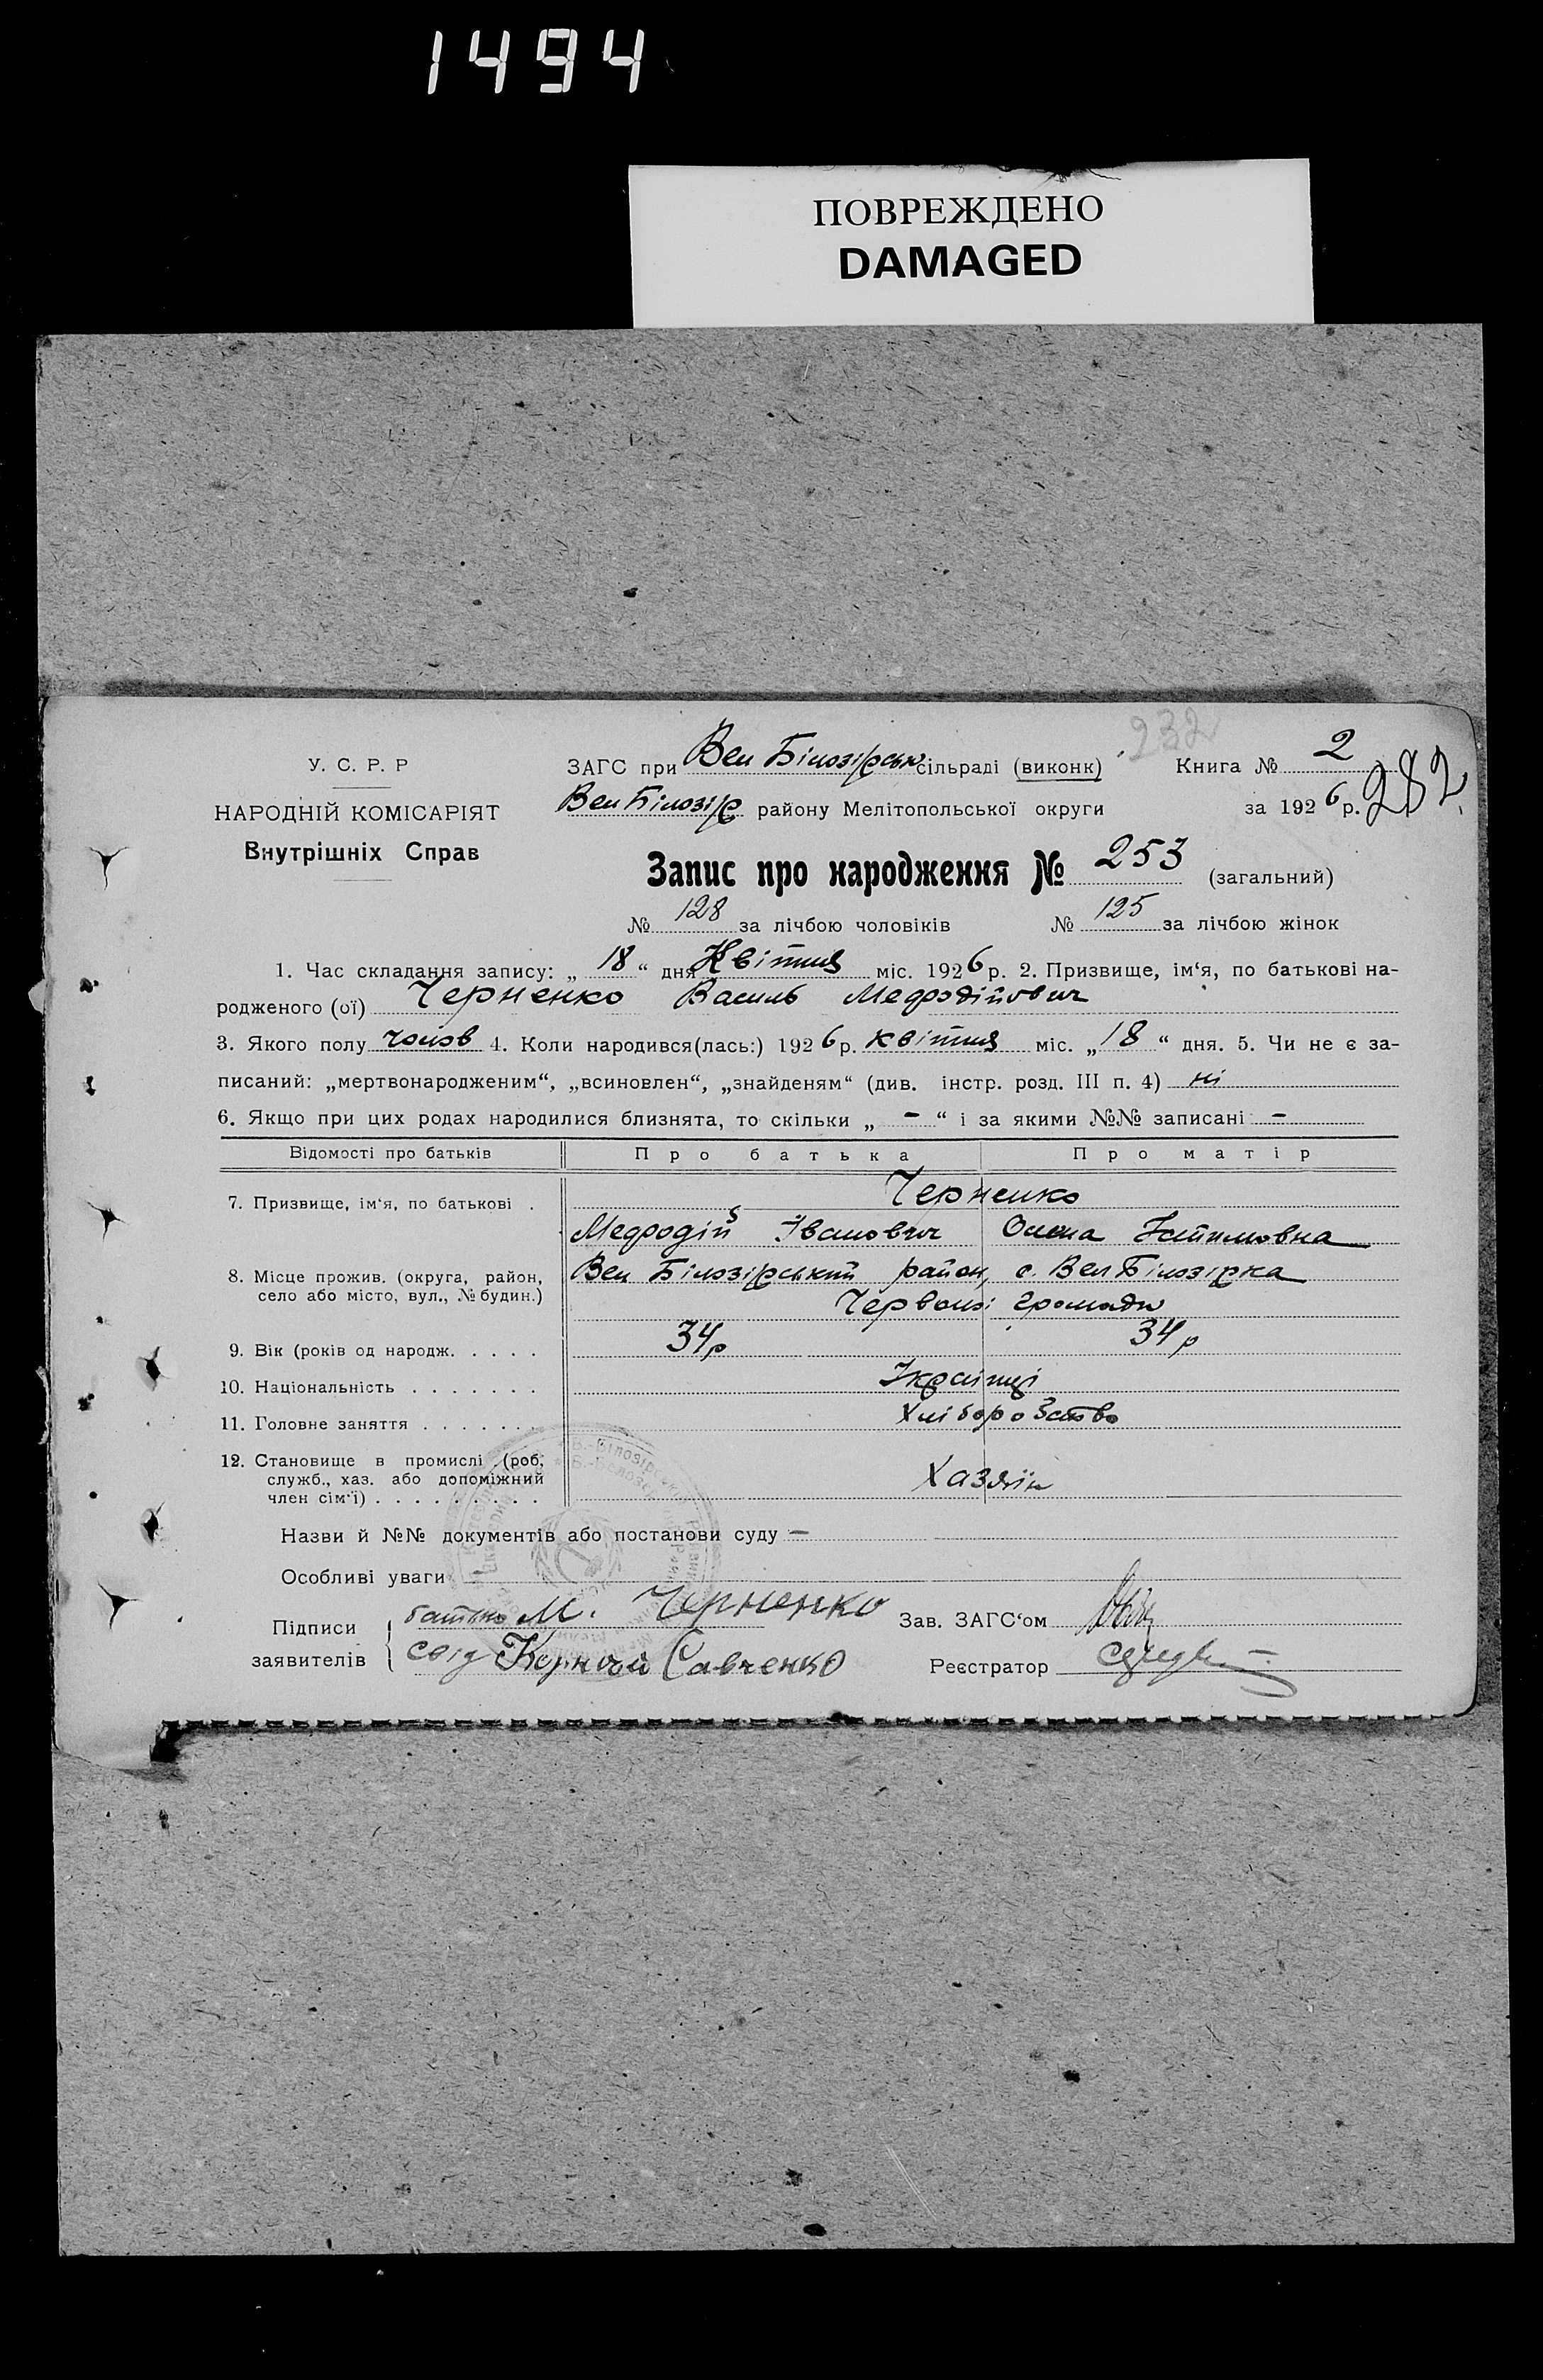 1494
ПОВРЕЖДЕНО
DAMAGED
232
У. С. Р. Р
НАРОДНІЙ КОМІСАРІЯТ
Внутрішніх Справ
ЗАГС при Вел Білозірськ сільраді (виконк) Книга № 2
Вел Білозір району Мелітопольської округи за 1926 р. 282
Запис про народження № 253 (загальний)
№ 128 за лічбою чоловіків № 125 за лічбою жінок
1. Час складання запису: „ 18 “ дня Квітня міс. 1926 р. 2. Призвище, ім‘я, по батькові на-
родженого (ої) Черненко Василь Мефодійович
3. Якого полу чолов 4. Коли народився(лась:) 1926 р. квітня міс. „ 18 “ дня. 5. Чи не є за-
писаний: „мертвонародженим“, „всиновлен“, „знайденям“ (див. інстр. розд. III п. 4) ні
6. Якщо при цих родах народилися близнята, то скільки „ – “ і за якими №№ записані –
Відомості про батьків Про батька Про матір
7. Призвище, ім‘я, по батькові . Черненко
Мефодій Іванович Олена
8. Місце прожив. (округа, район, село або місто, вул., № будин.) Вел Білозірський район, с. Вел Білозірка
Червоної громади
9. Вік (років од народж. . . . . 34 р 34 р
10. Національність . . . . . . . Українці
11. Головне заняття . . . . . . Хліборобство
12. Становище в промислі (роб.
служб., хаз. або допоміжний
член сім‘ї) . . . . . . . . . Хазяїн
Назви й №№ документів або постанови суду –
Особливі уваги
Підписи батько М. Черненко Зав. ЗАГС‘ом
заявителів свід Корній Савченко Реєстратор